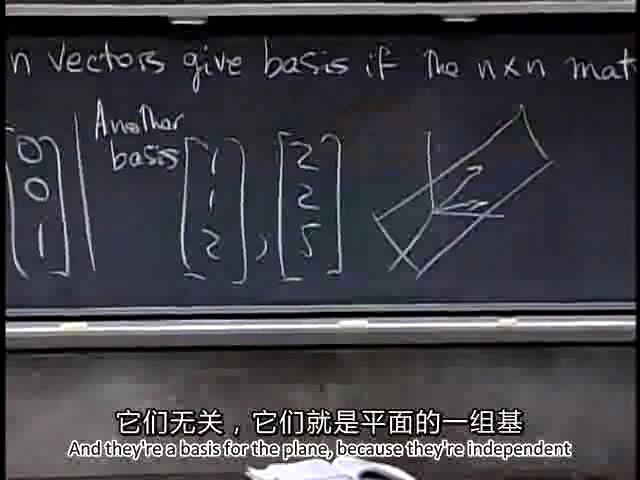 n vectors give basis if the n×n mat
Another
basis
0
0
1
1
1
2
,
2
2
5
它们无关，它们就是平面的一组基
And they're a basis for the plane, because they're independent